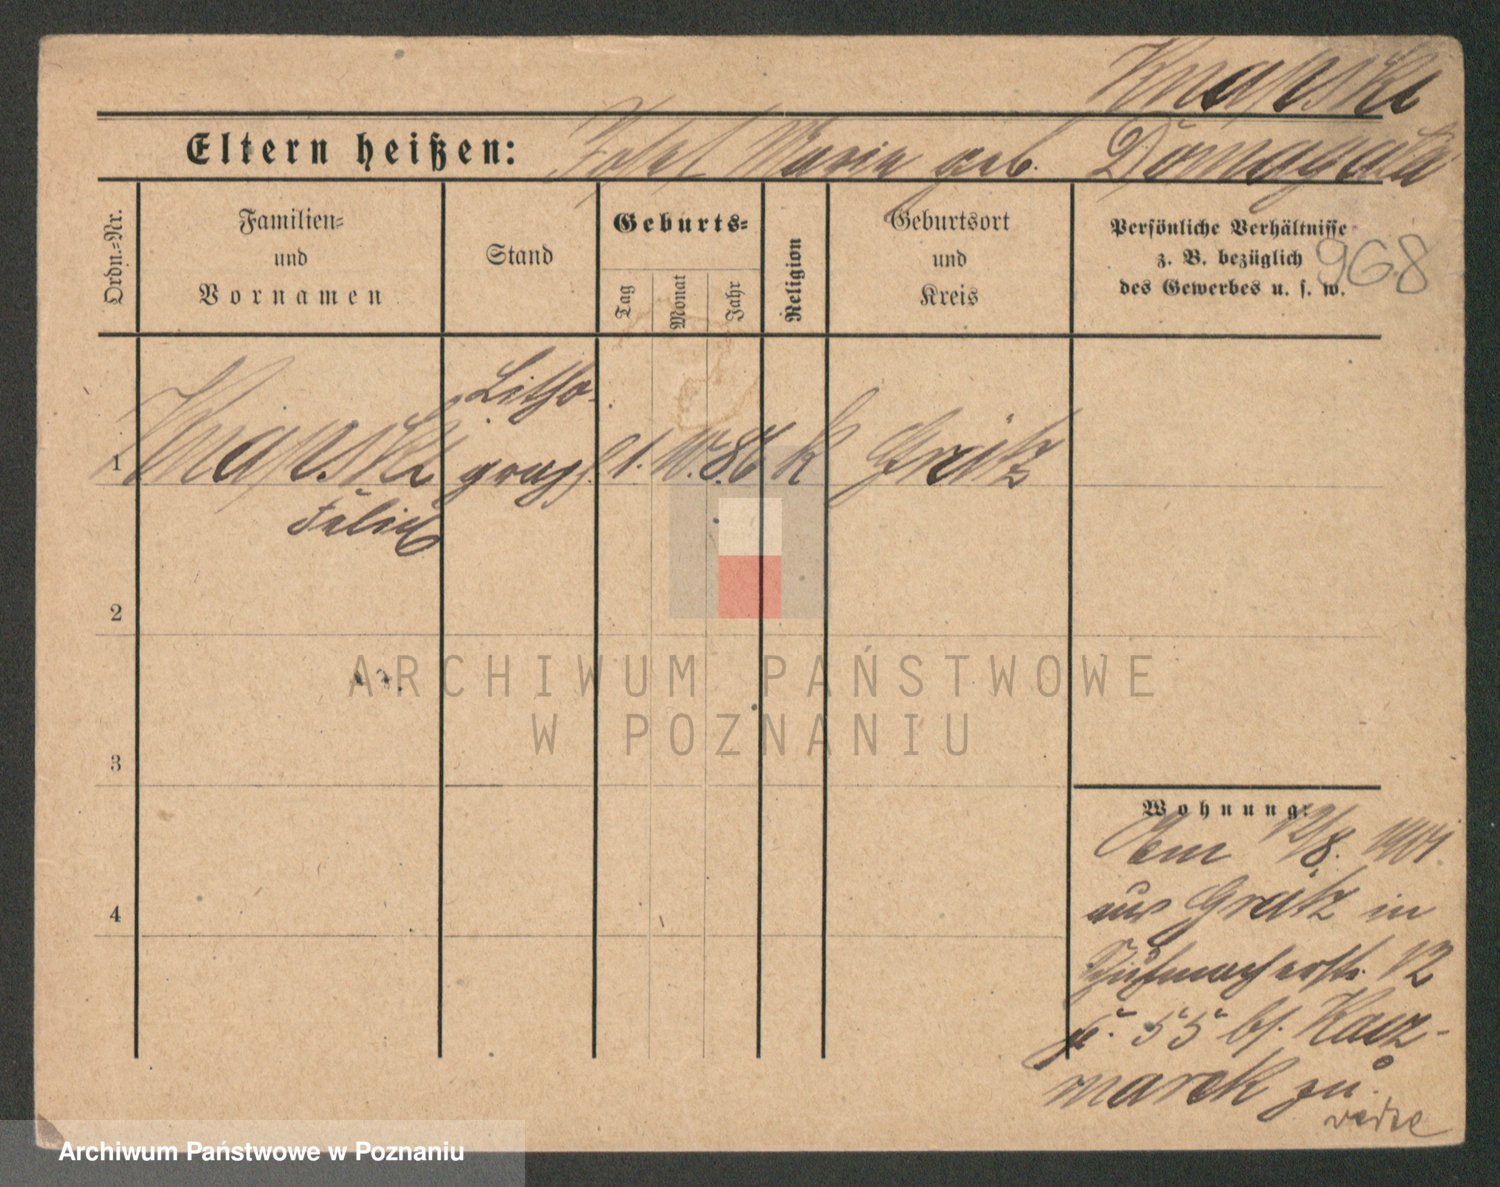 Knapski
Eltern heißen: Josef Marie geb. Domagala
Ordn.-Nr.
Familien-
und
Vornamen
Stand
Geburts-
Tag
Monat
Jahr
Religion
Geburtsort
und
Kreis
Persönliche Verhältnisse
z. B. bezüglich
des Gewerbes u. s. w.
968
Litho-
1 Knapski graph. 1. 10. 86 k Grätz
Felix
2
ARCHIWUM PAŃSTWOWE
W POZNANIU
3
Wohnung:
12/8. 1901.
aus Grätz in
Schuhmacherstr. 12
55 bei Kacz-
marek zu
4
Archiwum Państwowe w Poznaniu